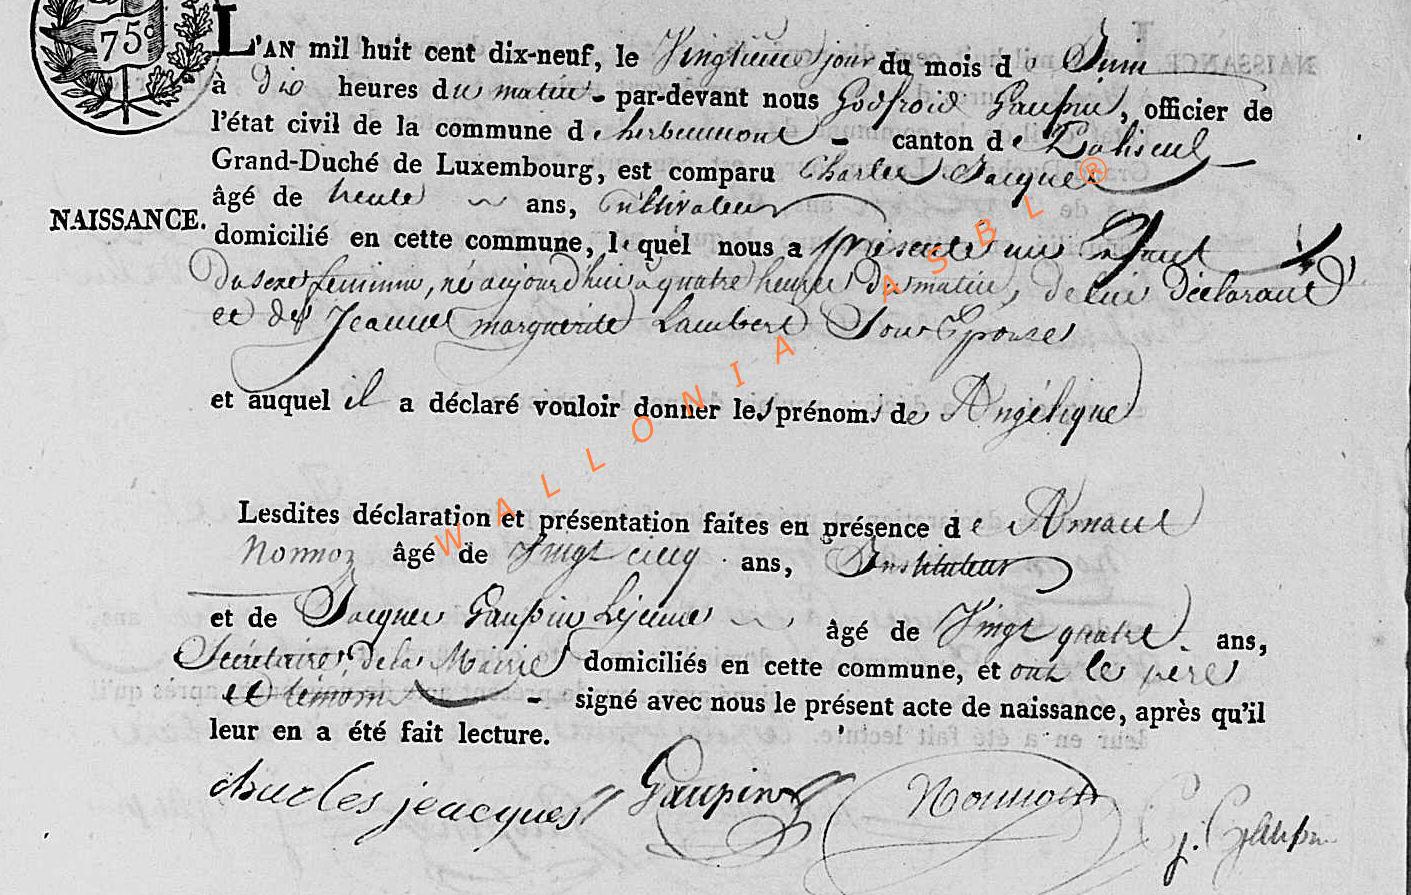 75c
L'AN mil huit cent dix-neuf, le Vingtieme jour du mois de Juin
à Dix heures du matin - par-devant nous Godfroid Gaupin, officier de
l'état civil de la commune de herbeumont - canton de Paliseul
Grand-Duché de Luxembourg, est comparu Charles Jacques
NAISSANCE. âgé de trente ans, Cultivateur
domicilié en cette commune, lequel nous a présenté un Enfant
Du sexe feminin, né aujourd'hui a quatre heures du matin, de lui déclarant
et de Jeanne marguerite Lambert Son Epouse
et auquel il a déclaré vouloir donner les prénoms de Angélique
Lesdites déclaration et présentation faites en présence de Arnaut
Nonnoz âgé de Vingt cinq ans, Instituteur
et de Jacques Gaupin Lejeune âgé de Vingt quatre ans,
Secrétaire de la Mairie domiciliés en cette commune, et ont le pere
et temoins - signé avec nous le présent acte de naissance, après qu'il
leur en a été fait lecture.
charles jeacques Gaupin J. Gaupin
WALLONIA ASBL ®